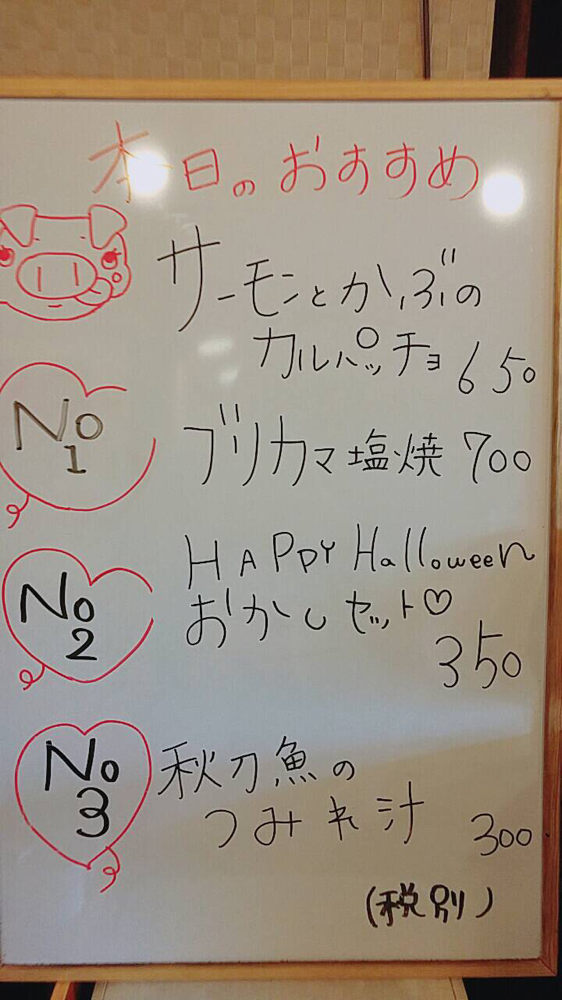 本日のおすすめ
サーモンとかぶの
カルパッチョ 650
No
1
ブリカマ塩焼 700
HAPPY Halloween
おかしセット♡
350
No
2
No
3
秋刀魚の
つみれ汁 300
(税別)